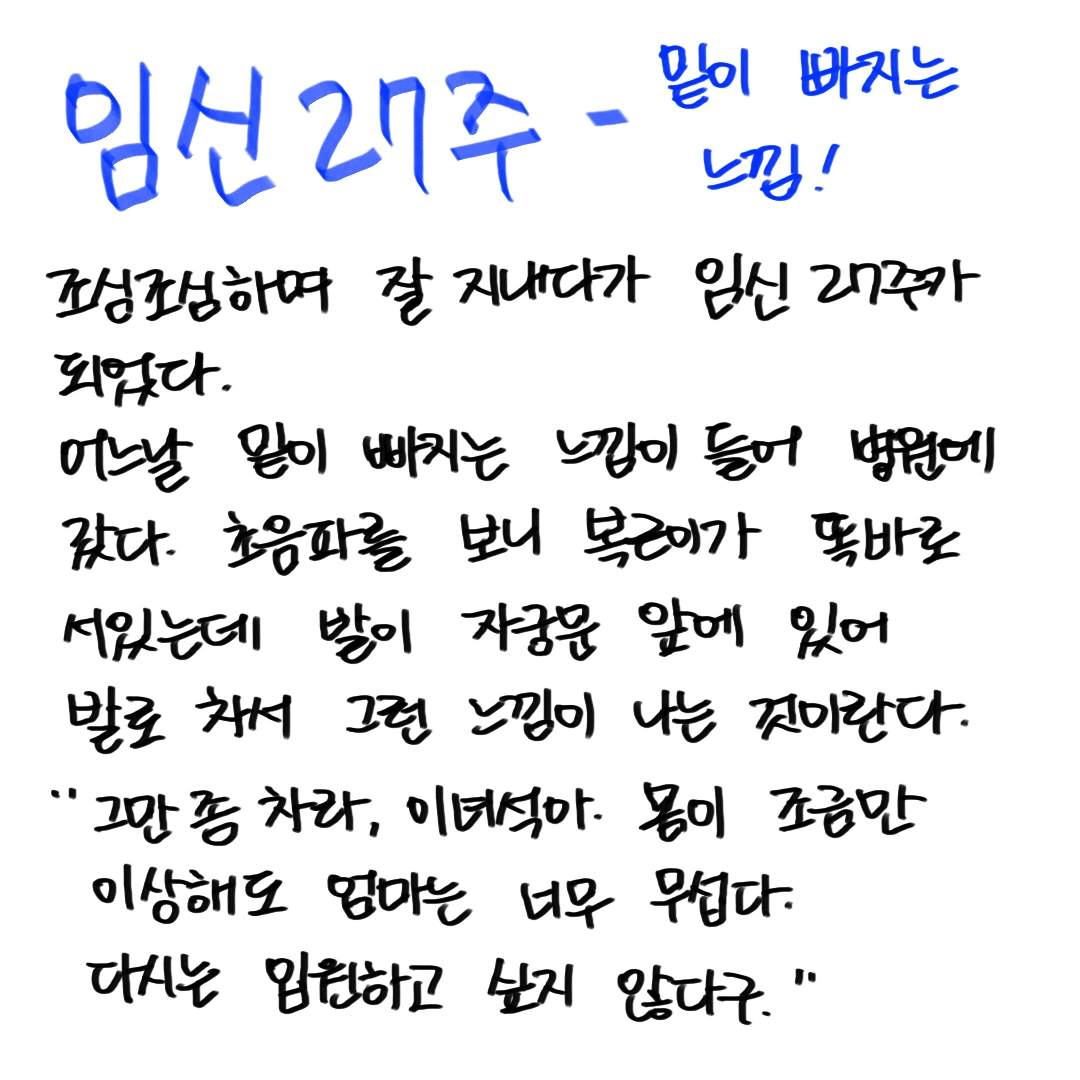 임신 27주 - 밑이 빠지는
느낌!
조심조심하며 잘 지내다가 임신 27주가
되었다.
어느날 밑이 빠지는 느낌이 들어 병원에
갔다. 초음파를 보니 복근이가 똑바로
서있는데 발이 자궁문 앞에 있어
발로 차서 그런 느낌이 나는 것이란다.
"그만 좀 차라, 이녀석아. 몸이 조금만
이상해도 엄마는 너무 무섭다.
다시는 입원하고 싶지 않다구."